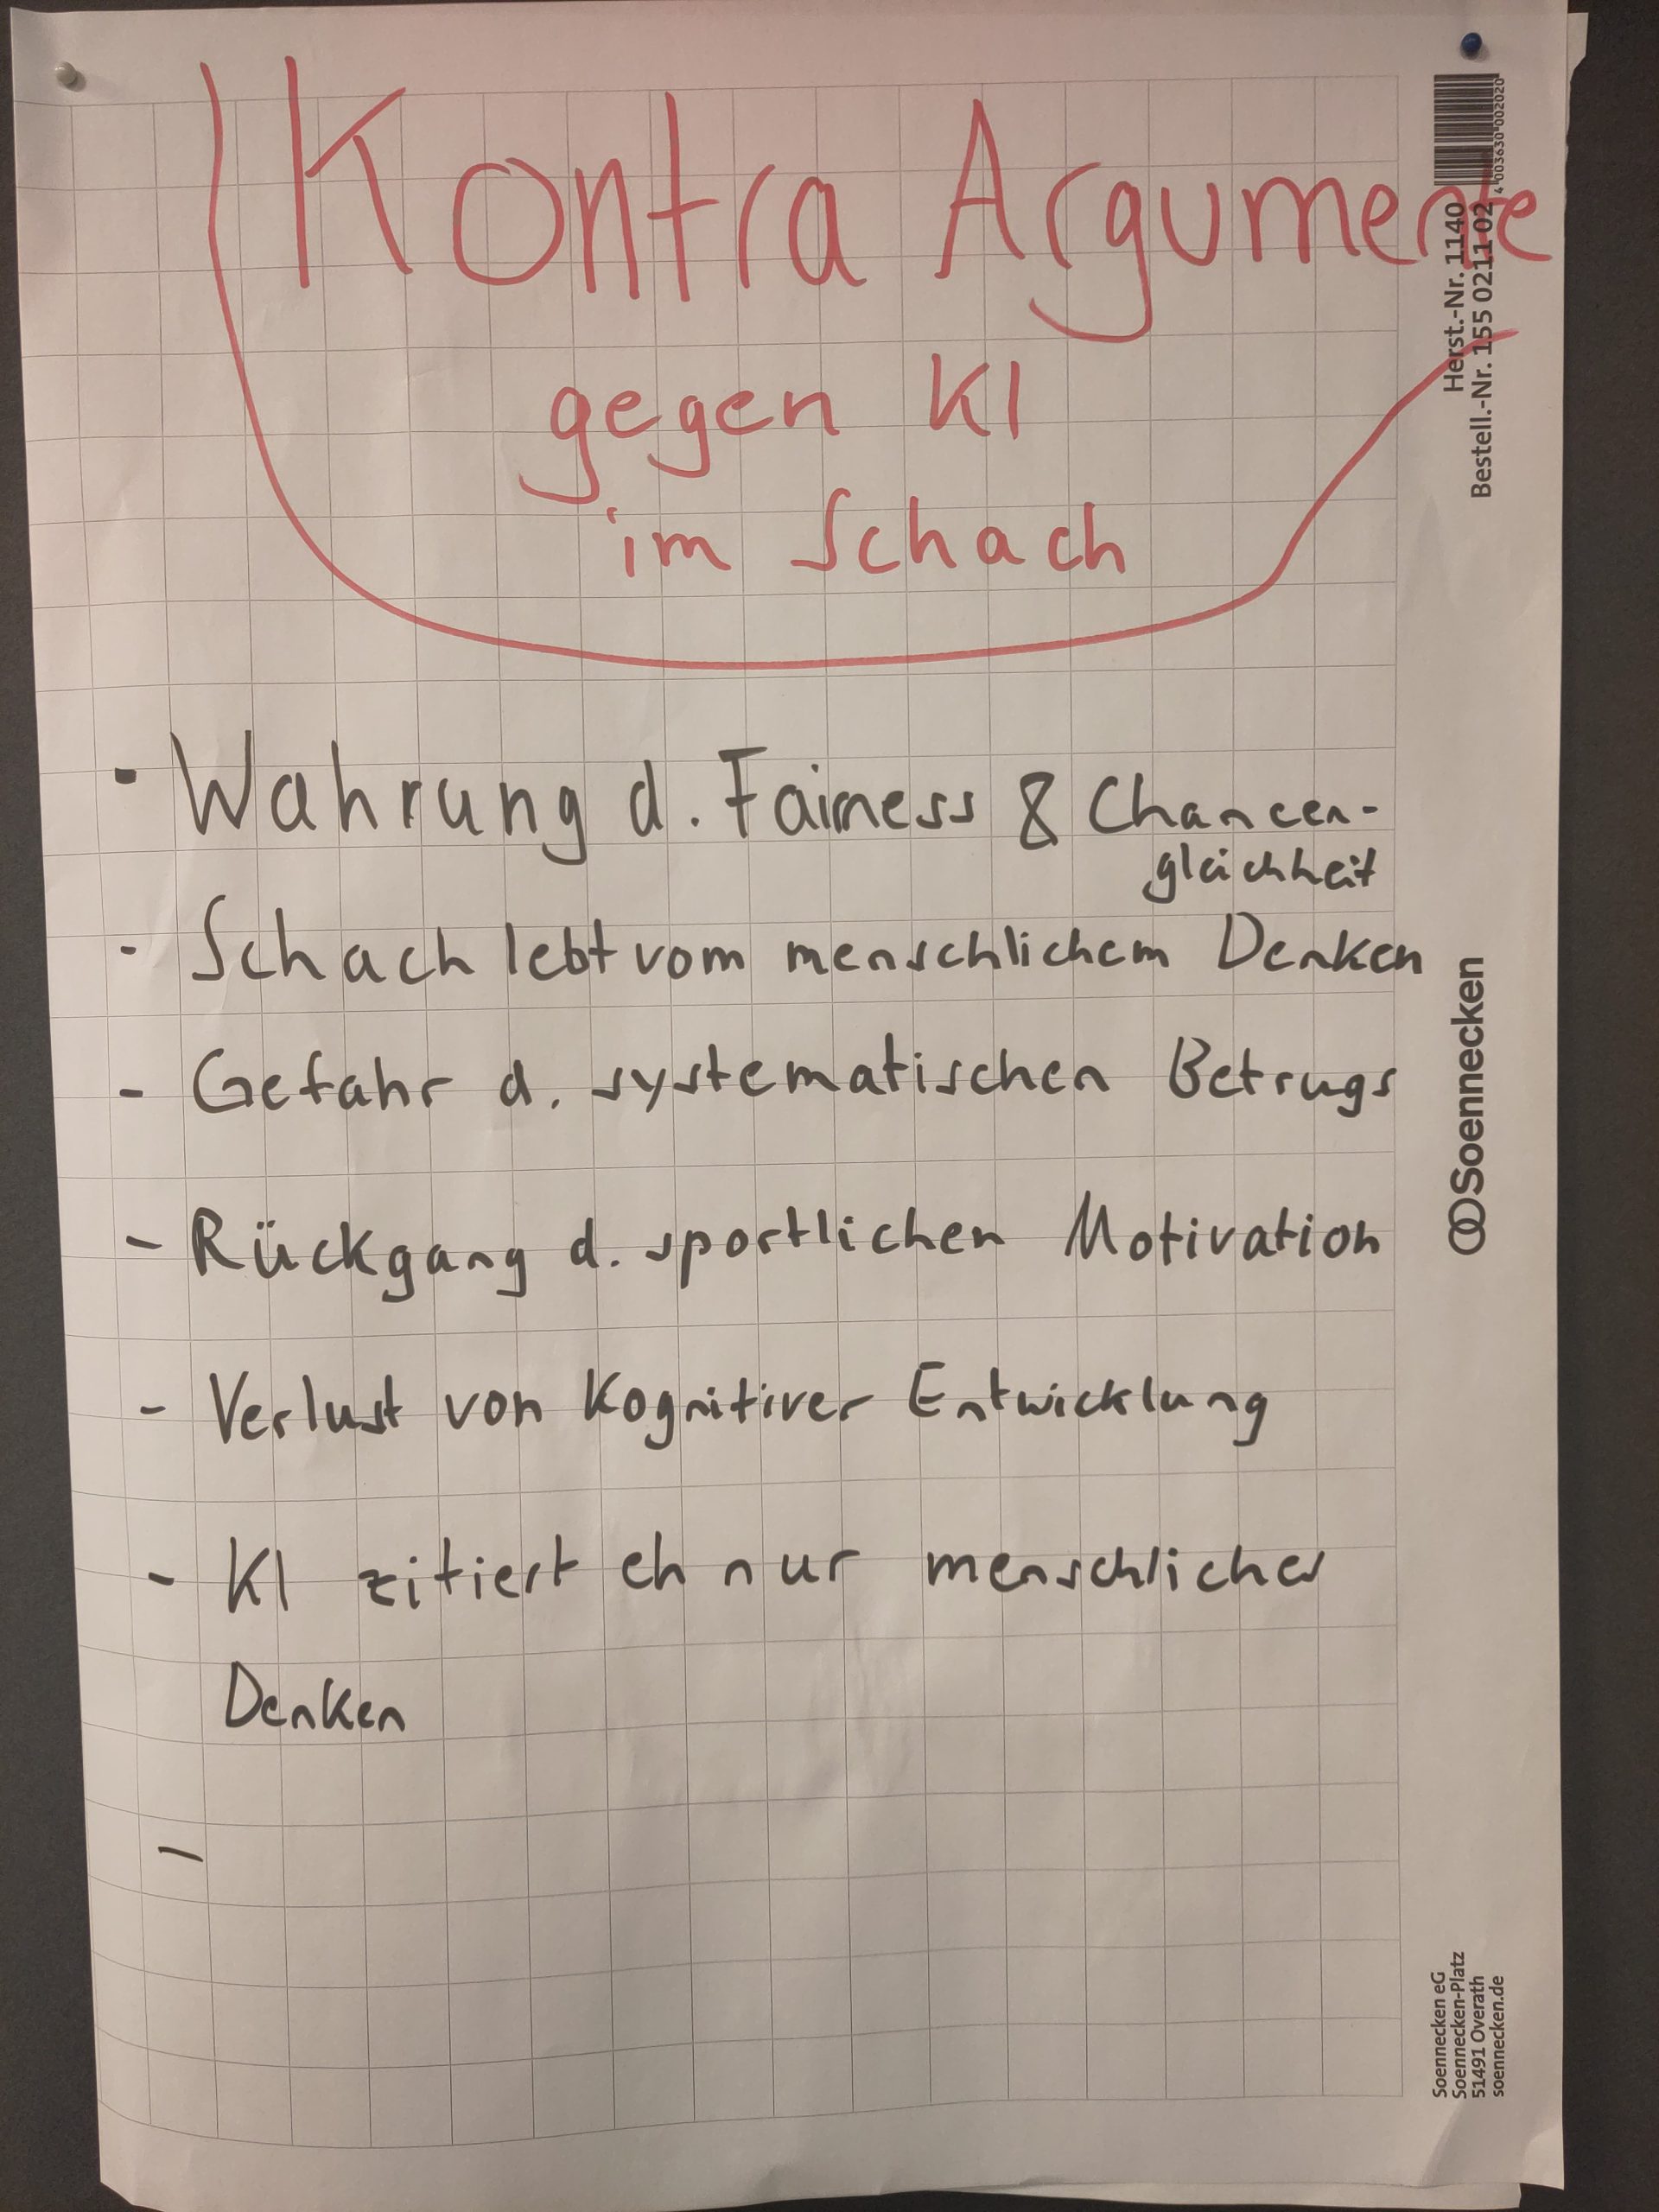 Kontra Argumente
gegen KI
im Schach
- Wahrung d. Fairness & Chancen-
gleichheit
- Schach lebt vom menschlichem Denken
- Gefahr d. systematischen Betrugs
- Rückgang d. sportlichen Motivation
- Verlust von Kognitiver Entwicklung
- KI zitiert eh nur menschliches
Denken
-
4 003630 002020
Herst.-Nr. 1140
Bestell.-Nr. 155 0211 02
Soennecken
Soennecken eG
Soennecken-Platz
51491 Overath
soennecken.de